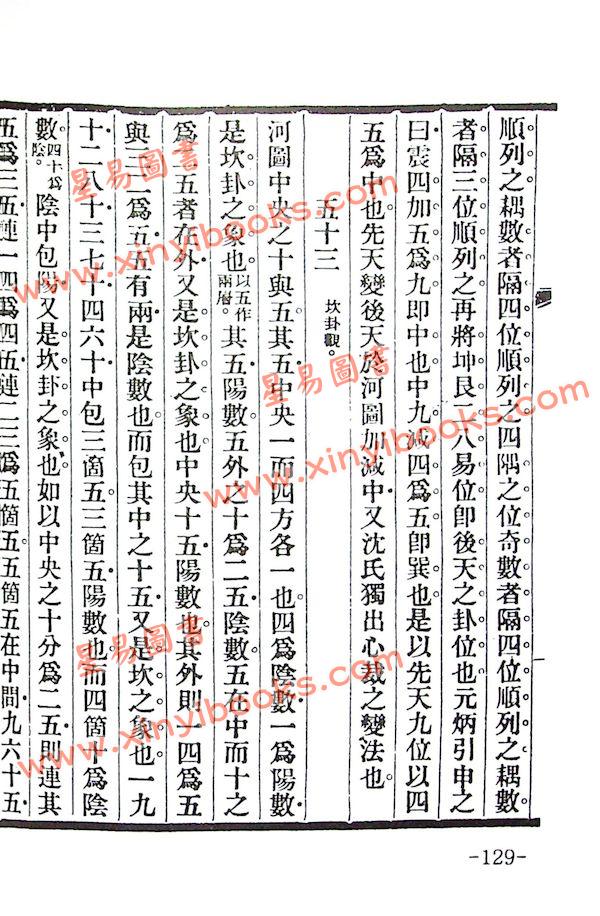 順列之耦數者隔四位順列之四隅之位奇數者隔四位順列之耦數
者隔三位順列之再將坤艮二八易位卽後天之卦位也元炳引申之
曰震四加五爲九卽中也中九減四爲五卽巽也是以先天九位以四
五爲中也先天變後天於河圖加減中又沈氏獨出心裁之變法也
五十三 坎卦觀。
河圖中央之十與五其五中央一而四方各一也四爲陰數一爲陽數
是坎卦之象也以五作兩層。其五陽數五外之十爲二五陰數五在中而十之
爲二五者在外又是坎卦之象也中央十五陽數也其外則一四爲五
與三二爲五五有兩是陰數也而包其中之十五又是坎之象也一九
十二八十三七十四六十中包三箇五三箇五陽數也而四箇十爲陰
數四十爲陰。陰中包陽又是坎卦之象也如以中央之十分爲二五則連其
五爲三五連一四爲四五連二三爲五箇五五箇五在中間九六十五
-129-
星易圖書
www.xinyibooks.com
星易圖書
www.xinyibooks.com
星易圖書
www.xinyibooks.com